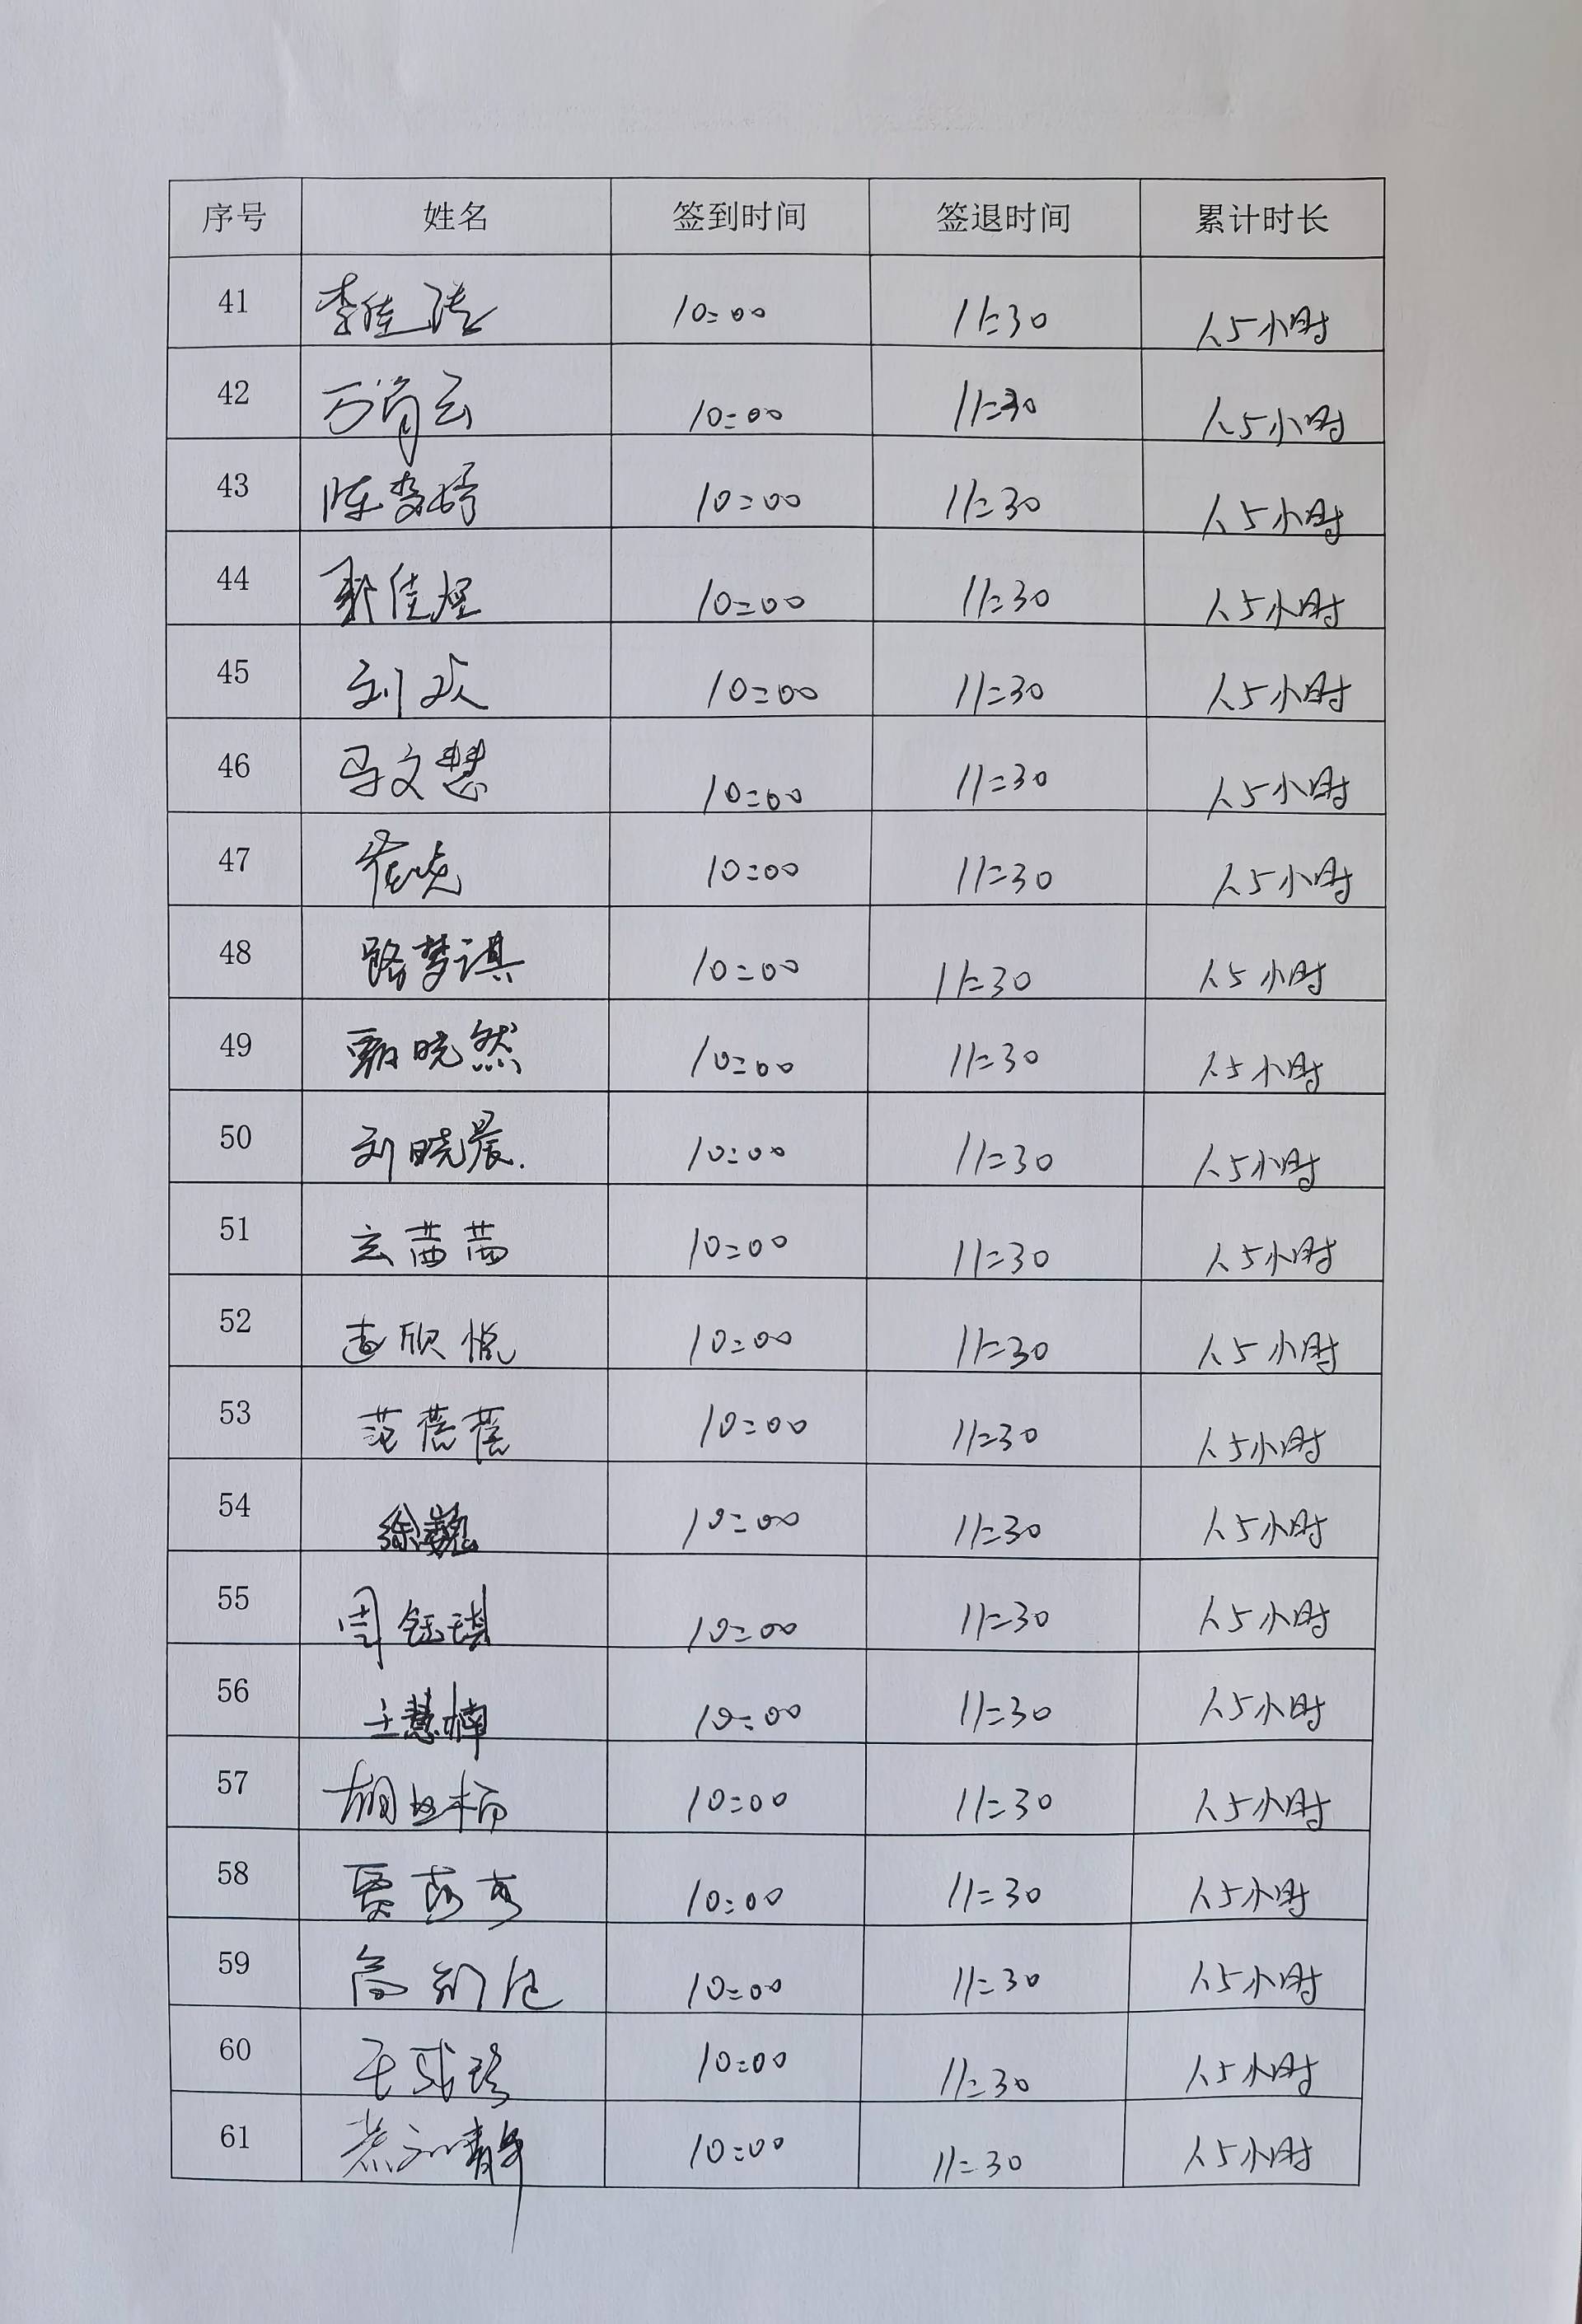 序号 姓名 签到时间 签退时间 累计时长
41 李佳 10:00 11:30 1.5小时
42 万肖云 10:00 11:30 1.5小时
43 陈梦婷 10:00 11:30 1.5小时
44 佳煜 10:00 11:30 1.5小时
45 刘欢 10:00 11:30 1.5小时
46 马文慧 10:00 11:30 1.5小时
47 10:00 11:30 1.5小时
48 路梦淇 10:00 11:30 1.5小时
49 晓然 10:00 11:30 1.5小时
50 刘晓晨. 10:00 11:30 1.5小时
51 玄茜茜 10:00 11:30 1.5小时
52 欣悦 10:00 11:30 1.5小时
53 范蓓蓓 10:00 11:30 1.5小时
54 徐巍 10:00 11:30 1.5小时
55 周钰琪 10:00 11:30 1.5小时
56 王慧楠 10:00 11:30 1.5小时
57 胡 10:00 11:30 1.5小时
58 贾 10:00 11:30 1.5小时
59 高 10:00 11:30 1.5小时
60 10:00 11:30 1.5小时
61 静 10:00 11:30 1.5小时